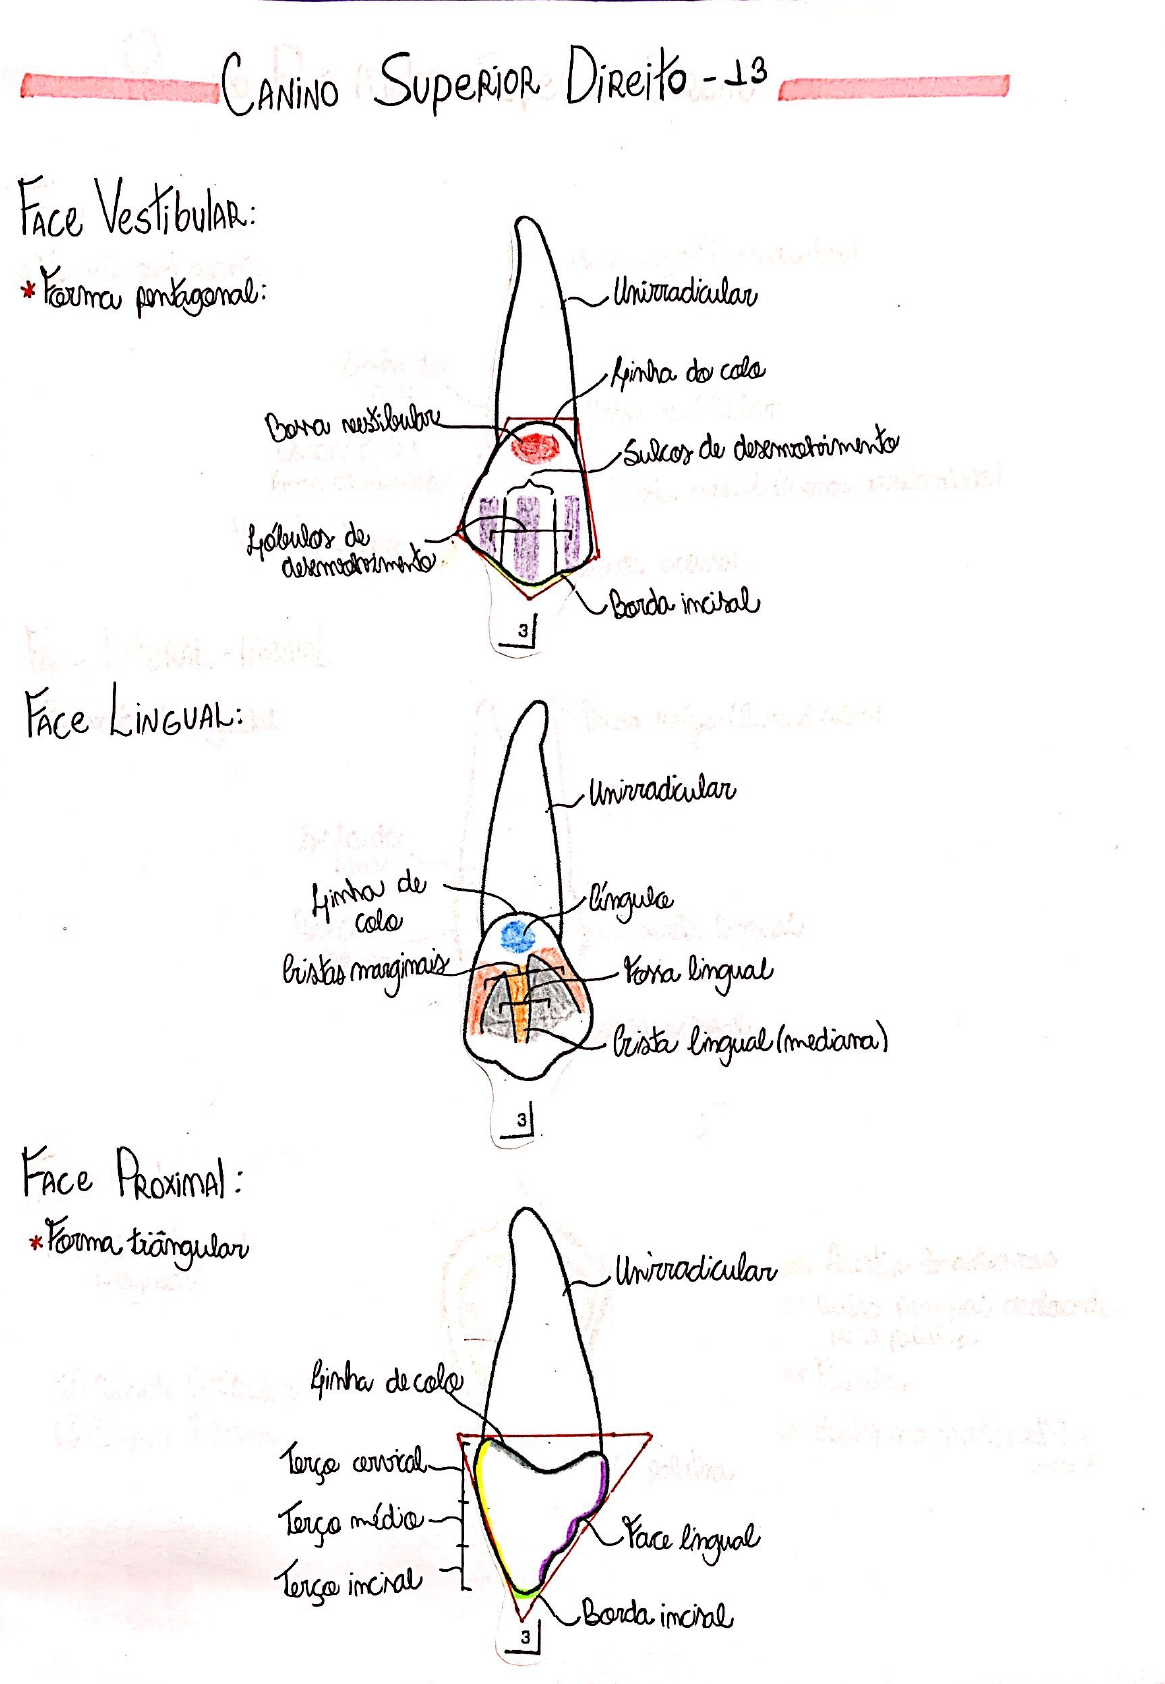 Canino Superior Direito - 13
Face Vestibular:
* Forma pentagonal:
Unirradicular
Linha do colo
Bossa vestibular
Sulcos de desenvolvimento
Lóbulos de
desenvolvimento
Borda incisal
3
Face Lingual:
Unirradicular
Linha de
colo
Cíngulo
Cristas marginais
Fossa lingual
Crista lingual (mediana)
3
Face Proximal:
* Forma triângular
Unirradicular
Linha de colo
Terço cervical
Terço médio
Face lingual
Terço incisal
Borda incisal
3